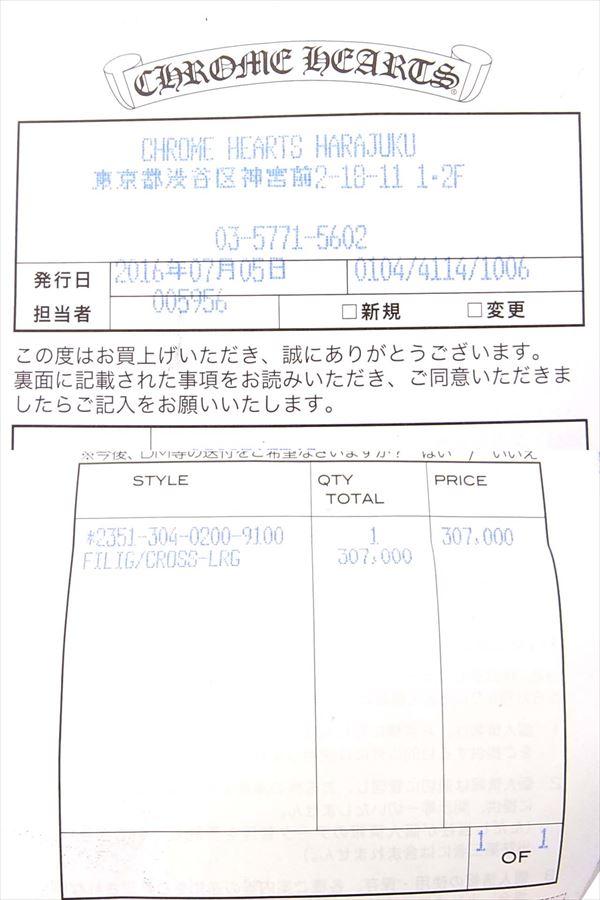 CHROME HEARTS®
CHROME HEARTS HARAJUKU
東京都渋谷区神宮前2-18-11 1・2F
03-5771-5602
発行日 2016年07月05日 0104/4114/1006
担当者 005956 □新規 □変更
この度はお買上げいただき、誠にありがとうございます。
裏面に記載された事項をお読みいただき、ご同意いただきま
したらご記入をお願いいたします。
※今後、DM等の送付をご希望なさいますか? はい / いいえ
STYLE QTY PRICE
TOTAL
*2351-304-0200-9100 1 307,000
FILIG/CROSS-LRG 307,000
1 OF 1